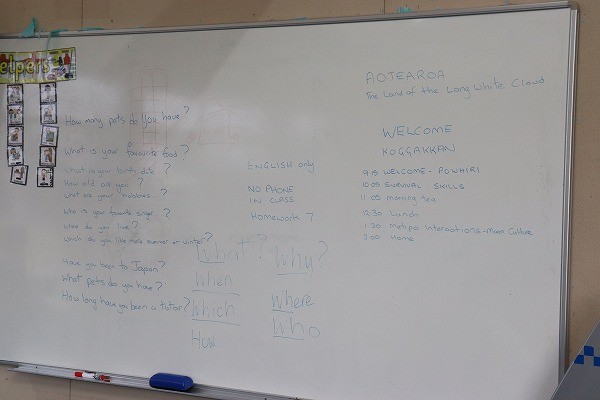 elpers
How many pets do you have?
What is your favourite food?
What is your birth date?
How old are you?
What are your hobbies?
Who is your favorite singer?
Where do you live?
Which do you like more summer or winter?
Have you been to Japan?
What pets do you have?
How long have you been a tutor?
ENGLISH only
NO PHONE
IN CLASS
Homework?
What?
When
Which
How
Why?
Where
Who
AOTEAROA
The Land of the Long White Cloud
WELCOME
KOGGAKKAN
9:15 WELCOME - POWHIRI
10:05 SURVIVAL SKILLS
11:05 morning tea
12:30 Lunch
1:30 Interactions - Maori Culture
3:00 Home